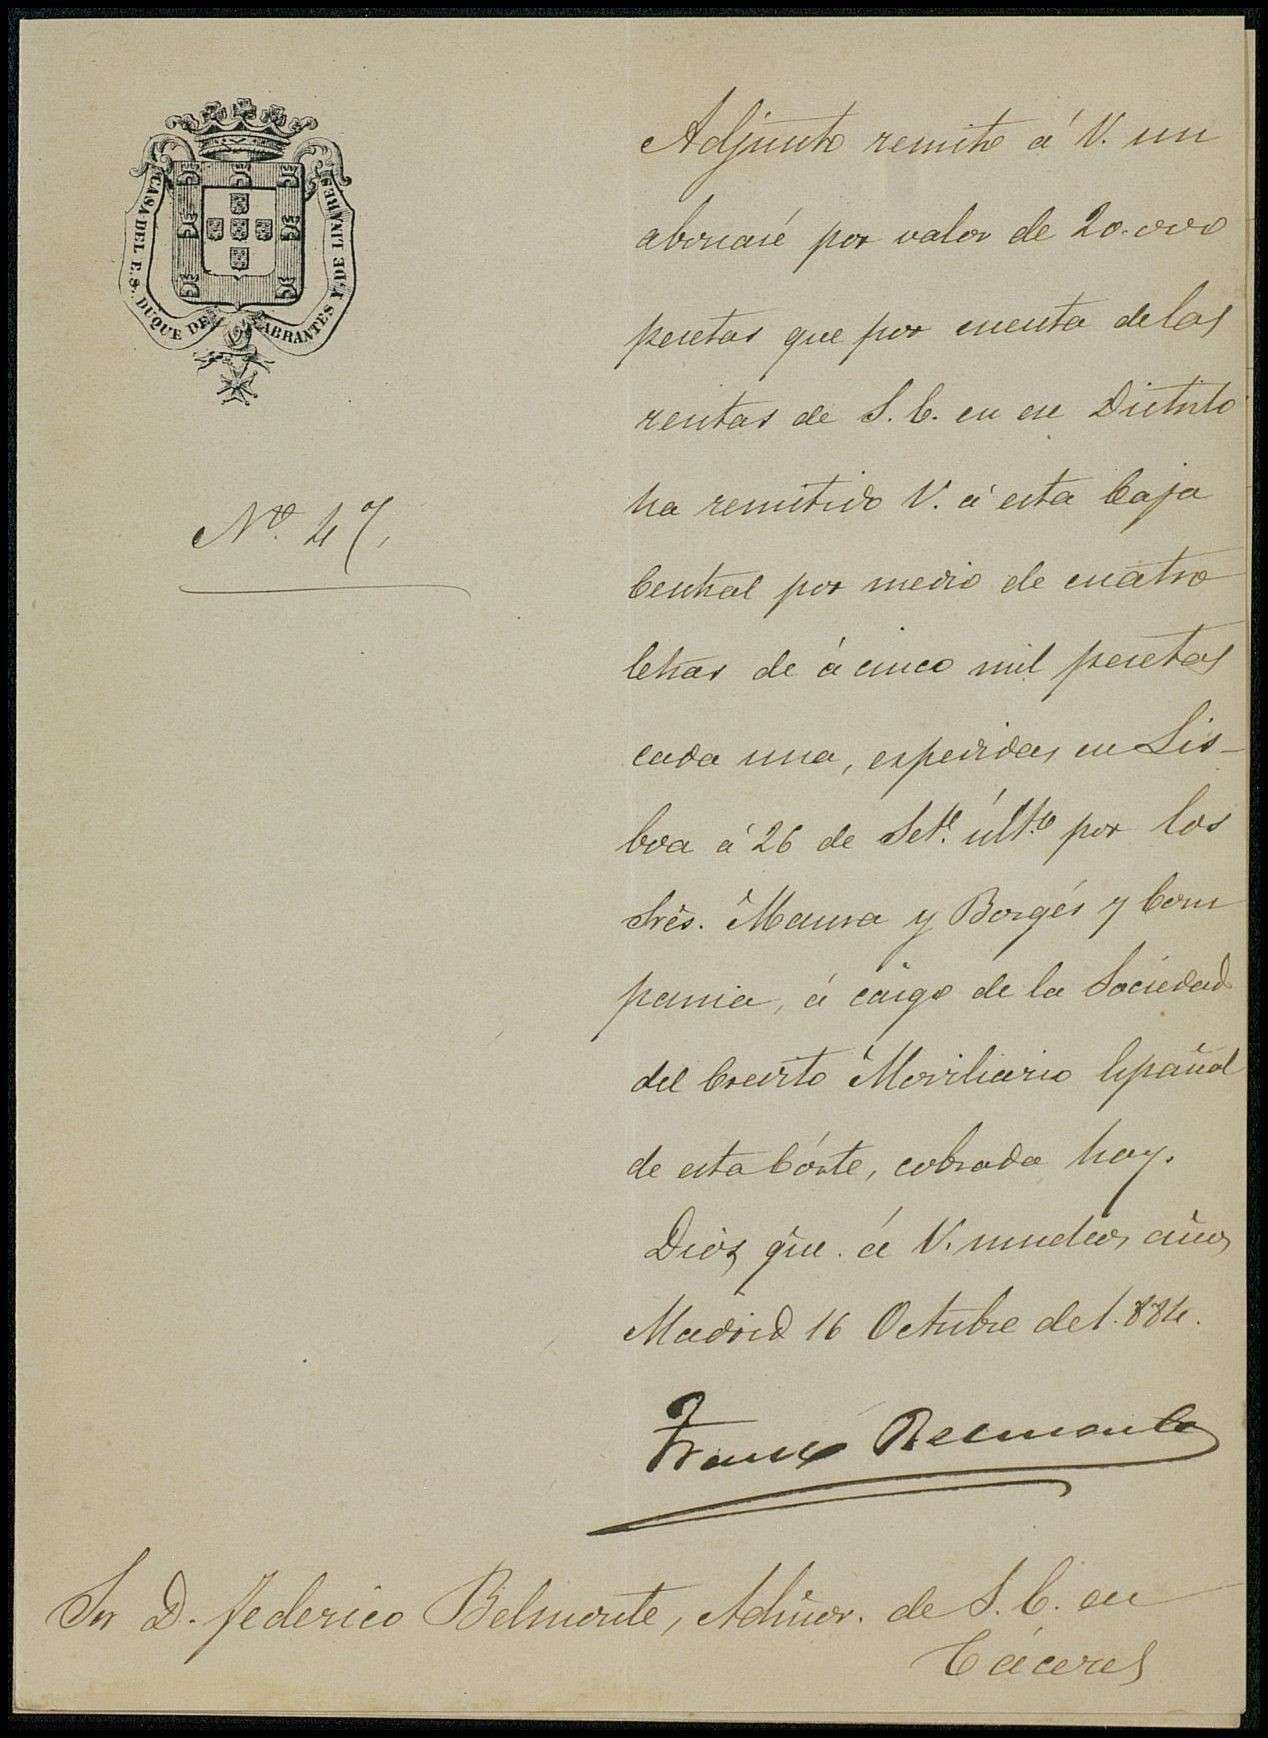 CASA DEL E. S. DUQUE DE ABRANTES Y DE LINARES
Nº. 47,
Adjunto remito á V. un
abonaré por valor de 20.000
pesetas que por cuenta de las
rentas de S. E. en ese Distrito
ha remitido V. á esta Caja
Central por medio de cuatro
letras de á cinco mil pesetas
cada una, espedidas en Lis-
boa á 26 de Set.e últ.o por los
Sres. Maura y Borgés y Com
pania, á cargo de la Sociedad
del Credito Moviliario Español
de esta Córte, cobrada hoy.
Dios gue. á V. muchos años
Madrid 16 Octubre de 1.884.
Franco Belmonte
Sr D. Federico Belmonte, Admor. de S. E. en
Cáceres